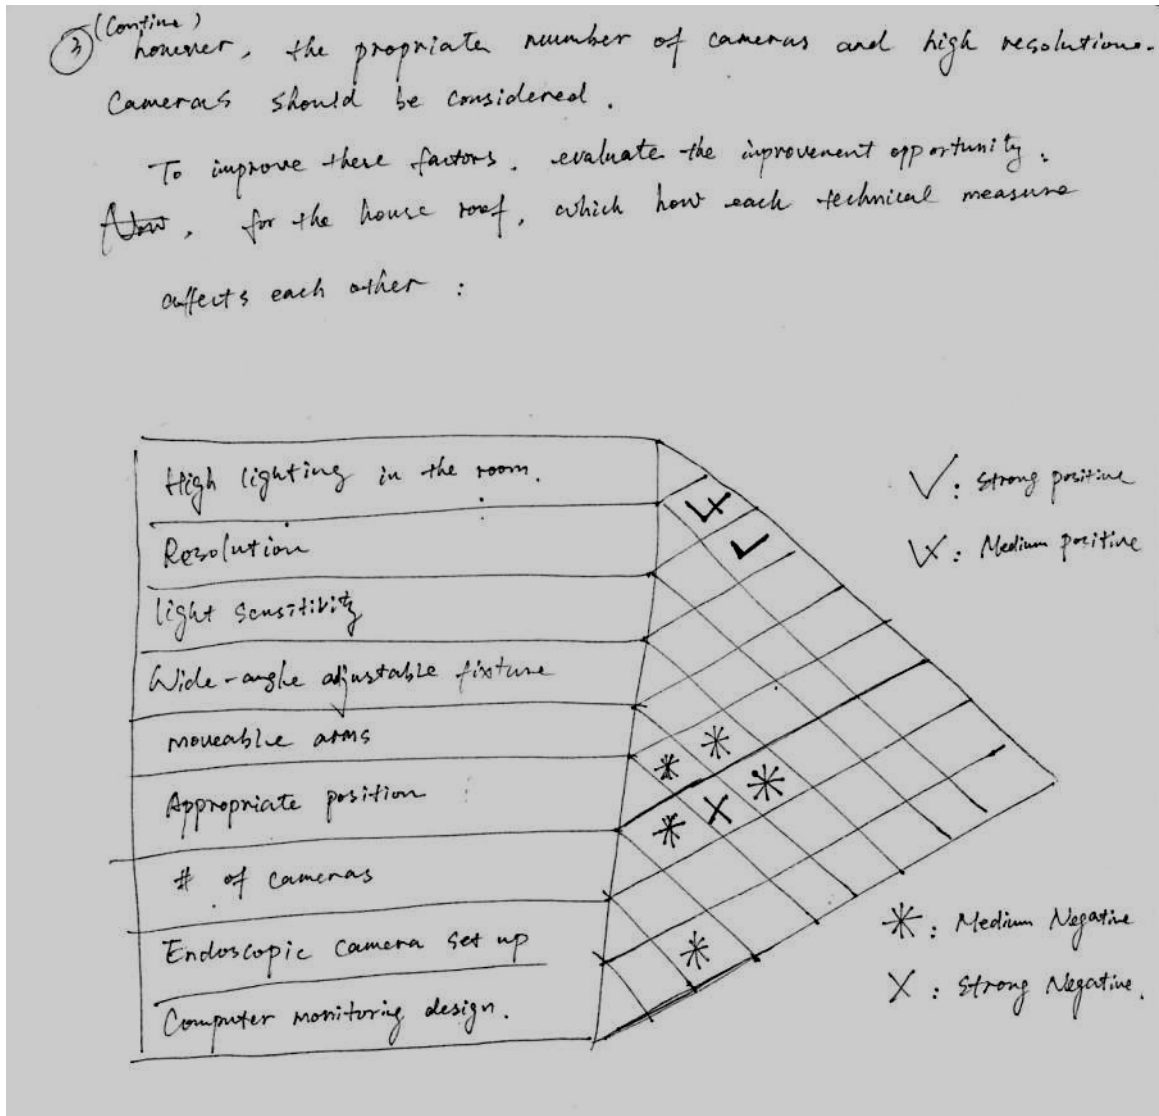 ③ (Contine)
however, the propriate number of cameras and high resolutions.
Cameras should be considered.
To improve these factors. evaluate the improvement opportunity.
Now, for the house roof, which how each technical measure
affects each other :
High lighting in the room.
Resolution
light sensitivity
Wide-angle adjustable fixture
moveable arms
Appropriate position
# of cameras
Endoscopic camera set up
Computer monitoring design.
✓: Strong positive
: Medium positive
✳: Medium Negative
X: Strong Negative.